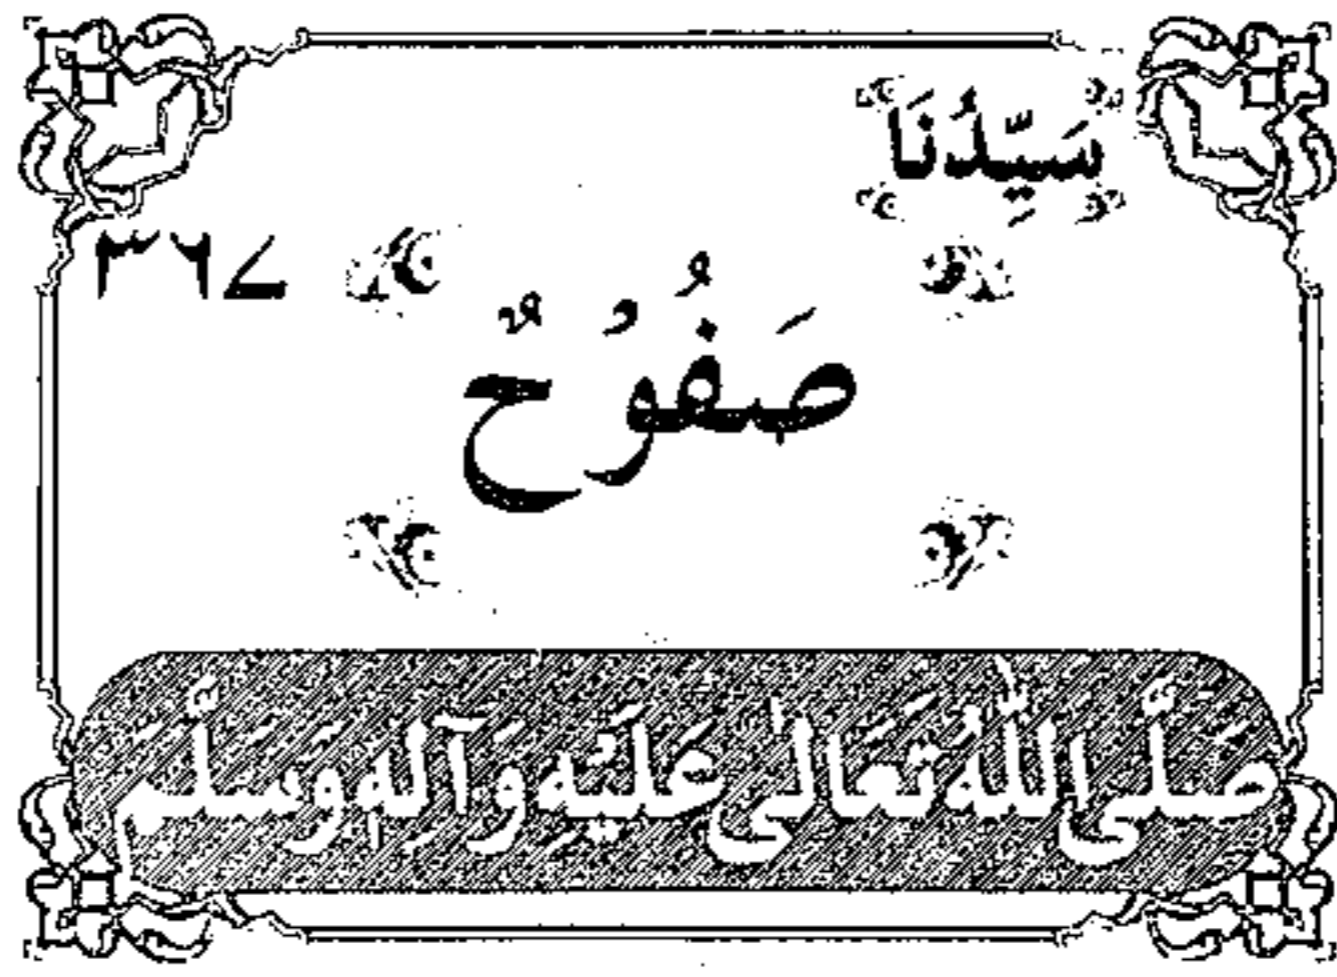 سَيِّدُنَا
٣٦٧
صَفُوْحٌ
صَلَّى اللّٰهُ تَعَالٰى عَلَيْهِ وَآلِهٖ وَسَلَّمَ